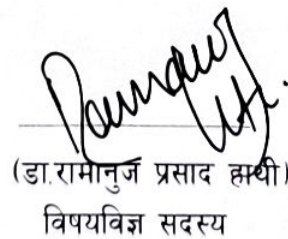 (डा.रामानुज प्रसाद हाथी)
विषयविज्ञ सदस्य